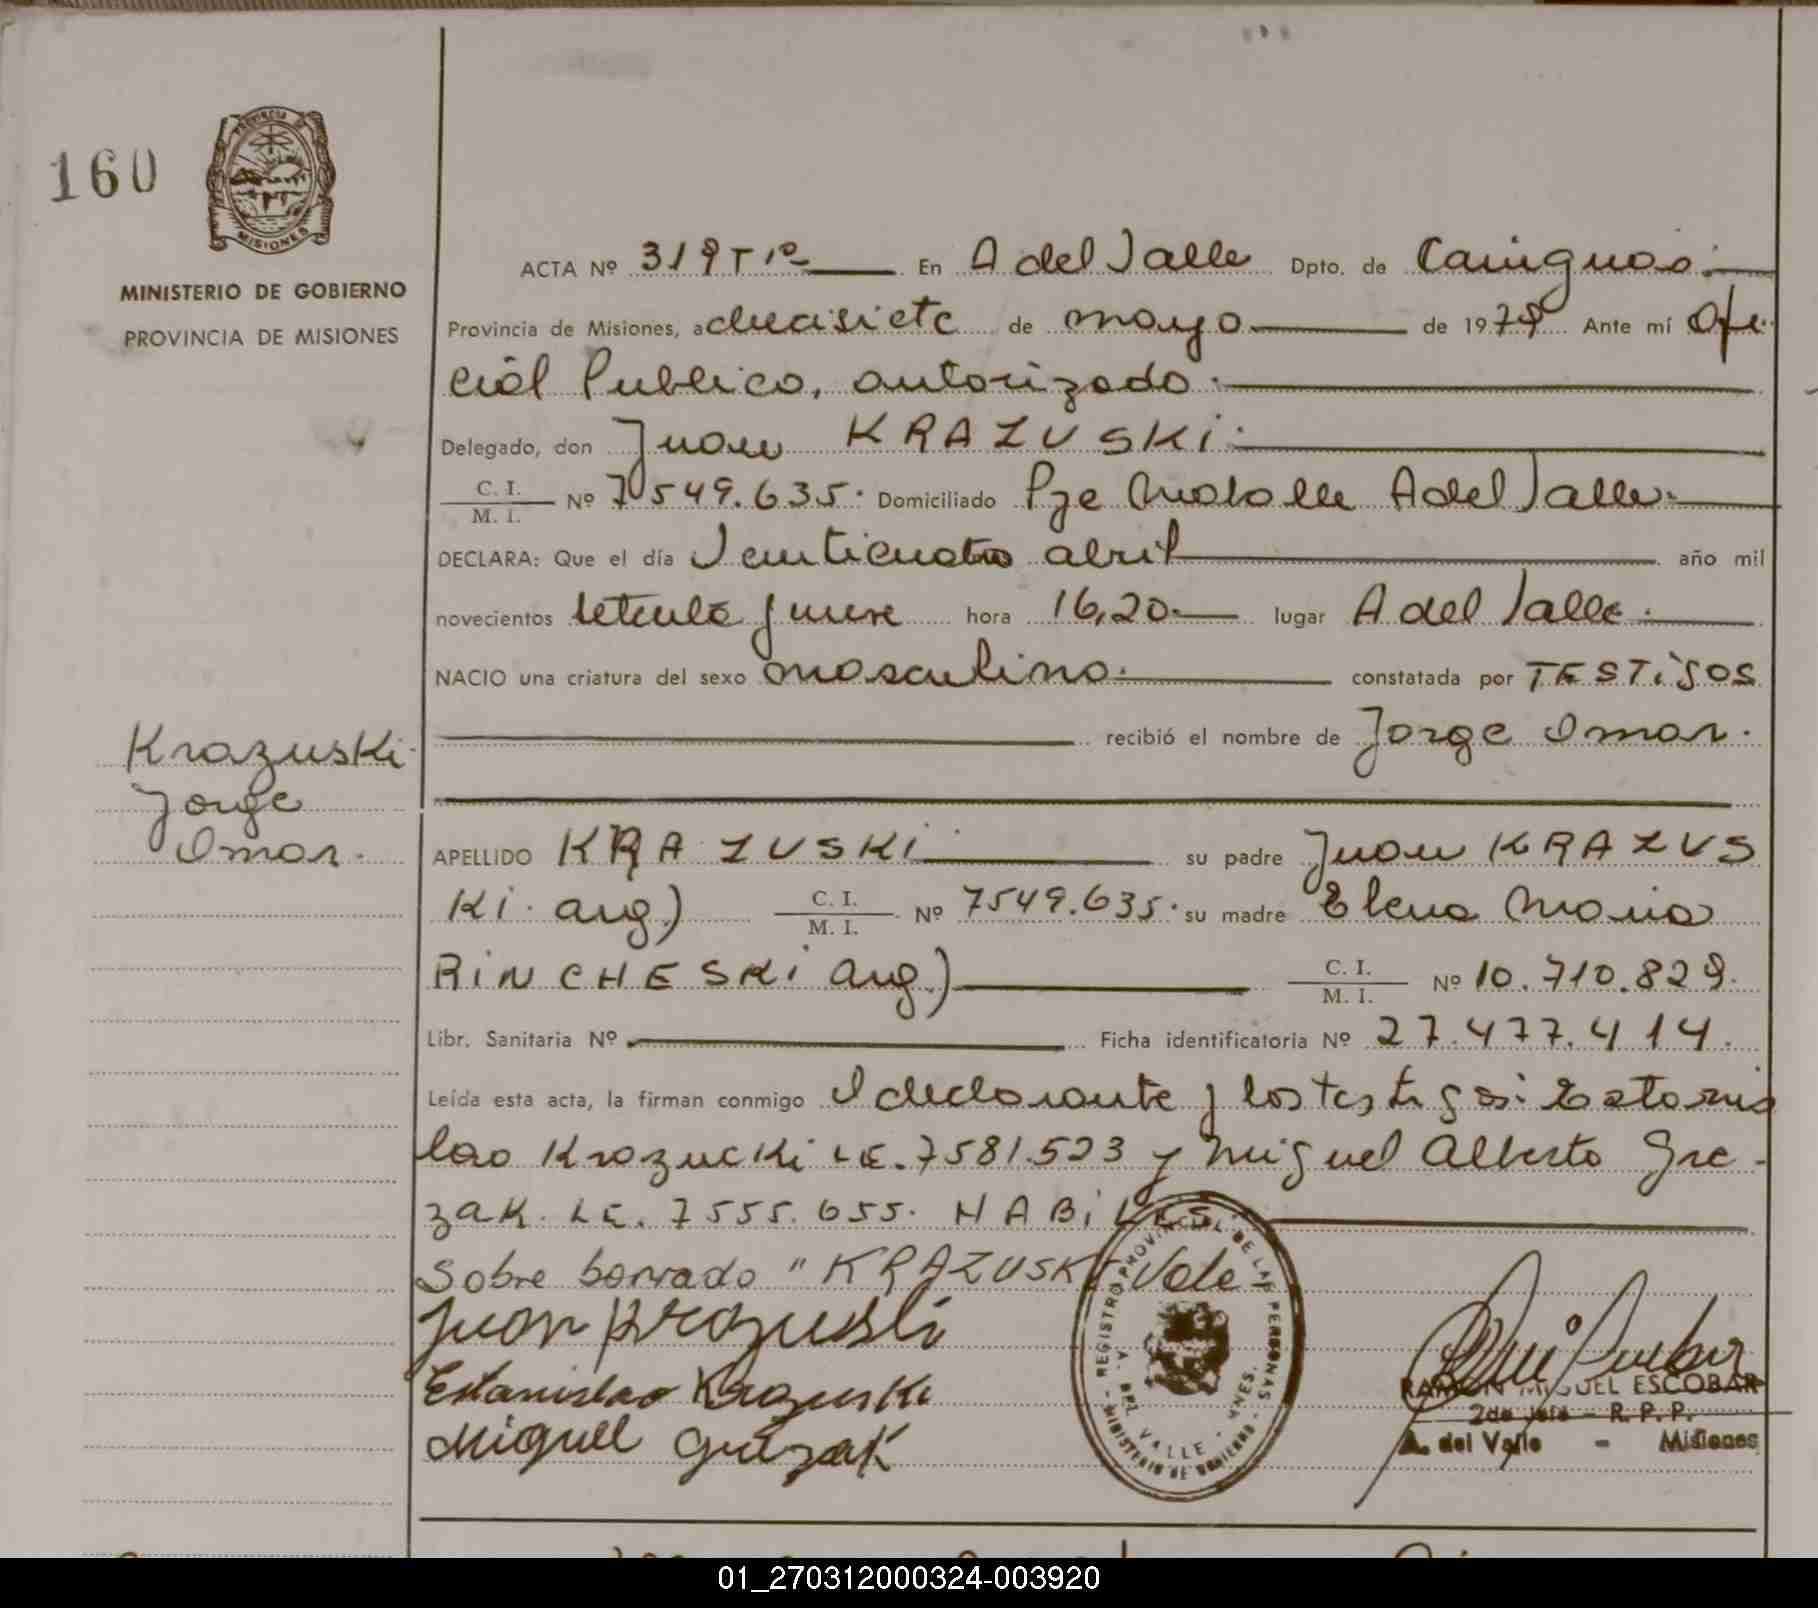 160
PROVINCIA DE
MISIONES
MINISTERIO DE GOBIERNO
PROVINCIA DE MISIONES
ACTA Nº 319 Tº 1º En A del Valle Dpto. de Cainguas.
Provincia de Misiones, a diecisiete de mayo de 1979 Ante mí Ofi
cial Publico, autorizado.
Delegado, don Juan KRAZUSKi.
C. I.
M. I. Nº 7549.635. Domiciliado Pje A del Valle.
DECLARA: Que el día Venticuatro abril año mil
novecientos setenta y nueve hora 16,20. lugar A del Valle.
NACIO una criatura del sexo masculino. constatada por TESTiGOS
recibió el nombre de Jorge Omar.
Krazuski
Jorge
Omar.
APELLIDO KRAZUSKi su padre Juan KRAZUS
Ki. arg.) C. I.
M. I. Nº 7549.635. su madre Elena Maria
RiNCHESKi arg.) C. I.
M. I. Nº 10.710.829.
Libr. Sanitaria Nº Ficha identificatoria Nº 27.477.414.
Leída esta acta, la firman conmigo el declarante y los testigos: Estanis
lao Krazucki LE. 7581.523 y Miguel Alberto Gre
zak. LE. 7555.655. HABiLES
Sobre borrado "KRAZUSKi" Vale
Juan Krazuski
Estanislao Krazuski
Miguel Grezak
REGISTRO PROVINCIAL DE LAS PERSONAS
A. DEL VALLE - MNES.
MINISTERIO DE GOBIERNO
RAMON MIGUEL ESCOBAR
2do Jefe - R. P. P.
A. del Valle - Misiones
01_270312000324-003920